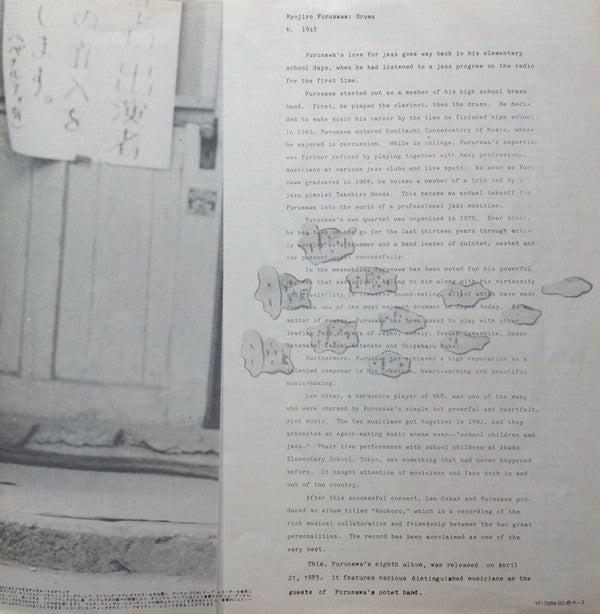 出演者
の直入を
します。
Ryojiro Furusawa: Drums
b. 1945
Furusawa's love for jazz goes way back in his elementary
school days, when he had listened to a jazz program on the radio
for the first time.
Furusawa started out as a member of his high school brass
band. First, he played the clarinet, then the drums. He deci-
ded to make music his career by the time he finished high school.
In 1965, Furusawa entered Kunitachi Conservatory of Music, where
he majored in percussion. While in college, Furusawa's expertise
was further refined by playing together with many professional
musicians at various jazz clubs and live spots. As soon as Furu-
sawa graduated in 1969, he became a member of a trio led by
jazz pianist Takehiro Honda. This became an actual takeoff for
Furusawa into the world of a professional jazz musician.
Furusawa's own quartet was organized in 1970. Ever since,
he has been on the go for the last thirteen years through activ-
ly working drummer and a band leader of quintet, sextet and
the present octet successfully.
In the meanwhile, Furusawa has been noted for his powerful
that to him along with his virtuosity
sibility in sound-making, all of which have made
as one of the most drummer in Japan today. As
matter of course, Furusawa has been asked to play with other
leading players of Japan, namely, Yosuke Yamashita, Sadao
Watanabe, Kazumi Watanabe and Shigeharu Mukai.
Furthermore, Furusawa has achieved a high reputation as a
talented composer in his creative, heart-warming and beautiful
music-making.
Lee Oskar, a harmonica player of WAR, was one of the many
who were charmed by Furusawa's simple but powerful and heartfelt,
rich music. The two musicians got together in 1981, and they
presented an epoch-making music scene ever--"school children and
jazz." Their live performance with school children at Akado
Elementary School, Tokyo, was something that had never happened
before. It caught attention of musicians and fans both in and
out of the country.
After this successful concert, Lee Oskar and Furusawa pro-
duced an album titled "Anokoro," which is a recording of the
rich musical collaboration and friendship between the two great
personalities. The record has been acclaimed as one of the
very best.
This, Furusawa's eighth album, was released on April
21, 1983. It features various distinguished musicians as the
guests of Furusawa's octet band.